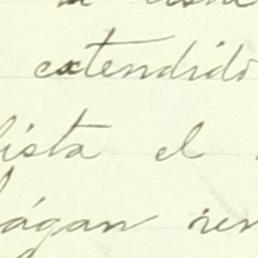 extendido
lista el
hágan ren